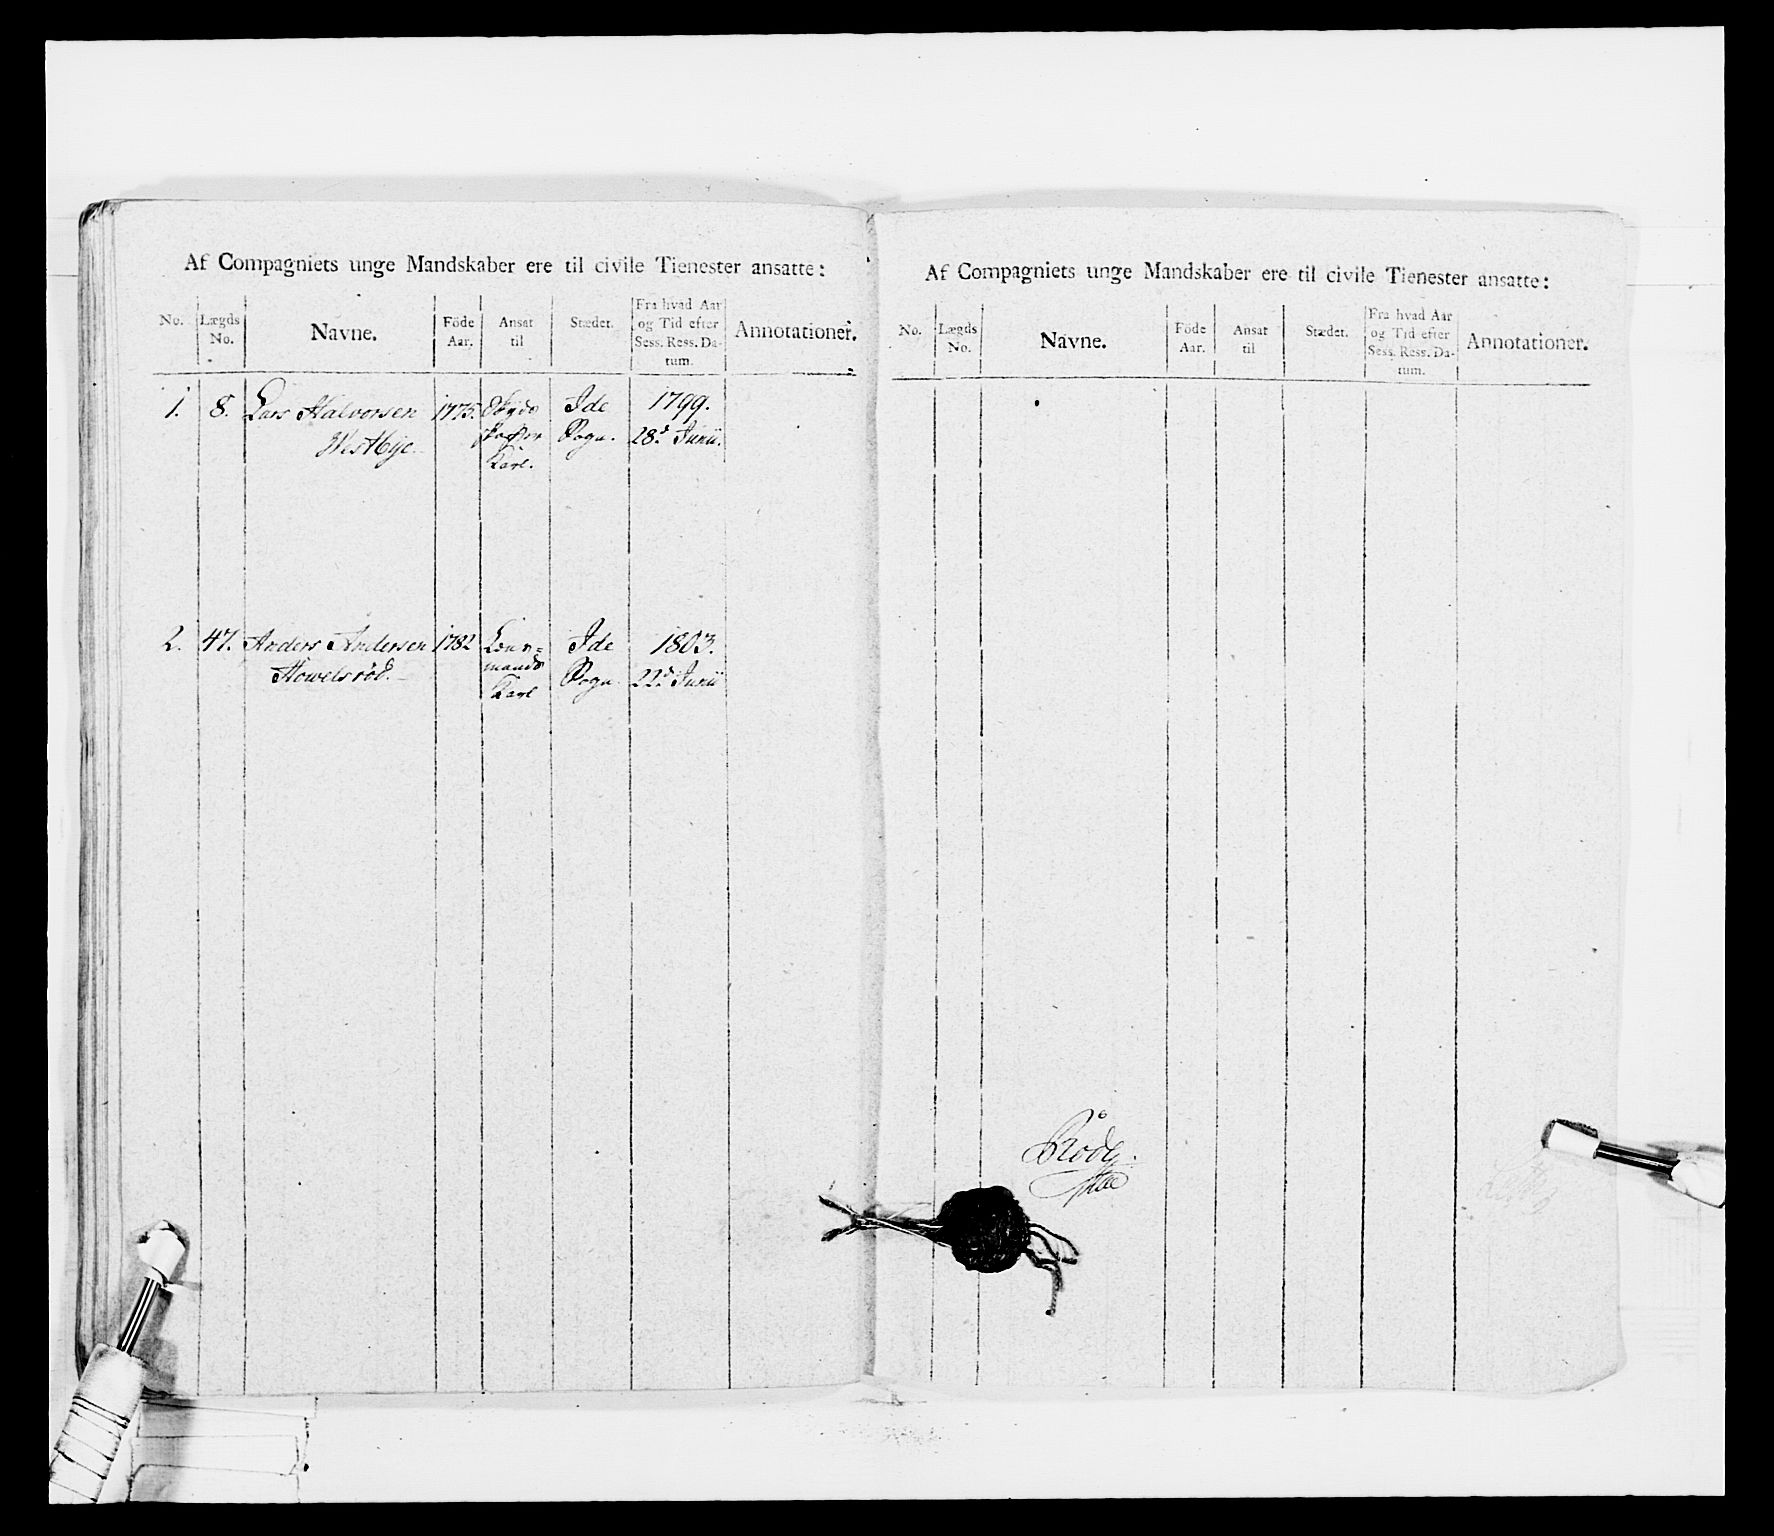 Af Compagniets unge Mandskaber ere til civile Tienester ansatte:
No.
Lægds
No.
Navne.
Föde
Aar.
Ansat
til
Stædet.
Fra hvad Aar
og Tid efter
Sess. Ress. Da-
tum.
Annotationer.
1.
8.
Lars Halvorsen
Westbye.
1775.
Skyds
skaffer
Karl.
Ide
Sogn.
1799.
28d Junii.
2.
47.
Anders Andersen
Howelsröd.
1782
Lens=
mands
Karl
Ide
Sogn.
1803.
22d Junii
Af Compagniets unge Mandskaber ere til civile Tienester ansatte:
No.
Lægds
No.
Navne.
Föde
Aar.
Ansat
til
Stædet.
Fra hvad Aar
og Tid efter
Sess. Ress. Da-
tum.
Annotationer.